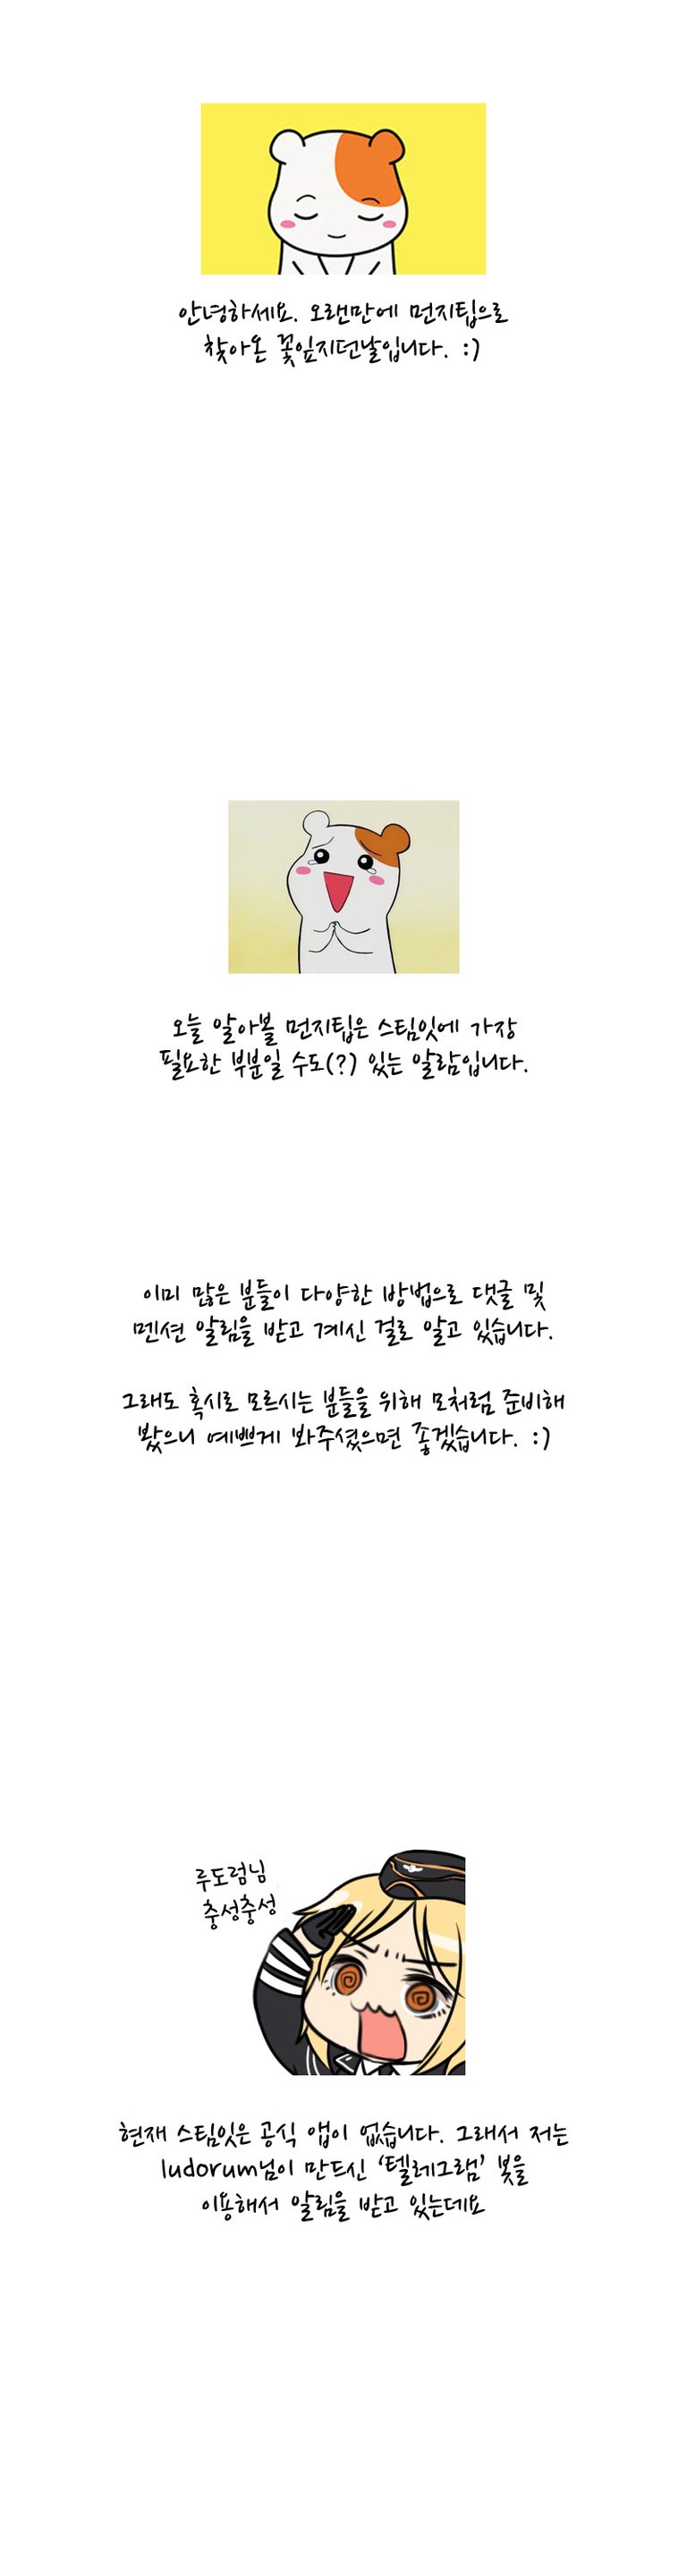 안녕하세요. 오랜만에 먼지팁으로
찾아온 꽃잎지던날입니다. :)
오늘 알아볼 먼지팁은 스팀잇에 가장
필요한 부분일 수도(?) 있는 알람입니다.
이미 많은 분들이 다양한 방법으로 댓글 및
멘션 알림을 받고 계신 걸로 알고 있습니다.
그래도 혹시로 모르시는 분들을 위해 모처럼 준비해
봤으니 예쁘게 봐주셨으면 좋겠습니다. :)
루도럼님
충성충성
현재 스팀잇은 공식 앱이 없습니다. 그래서 저는
ludorum님이 만드신 '텔레그램' 봇을
이용해서 알림을 받고 있는데요